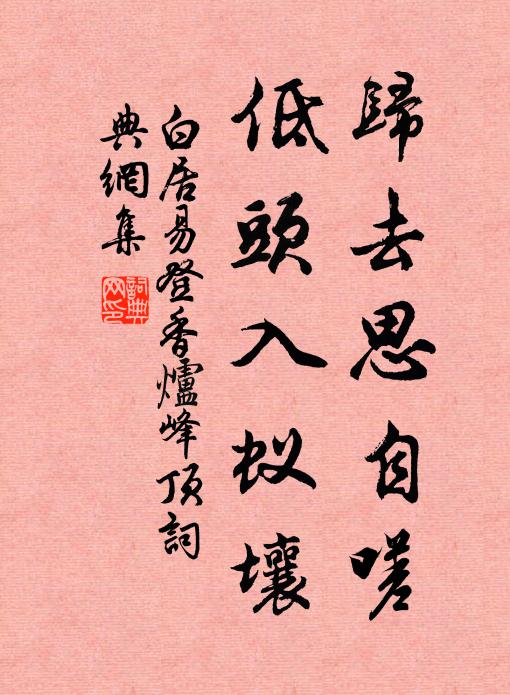 歸去思自嗟
低頭入蚁壤
白居易登香爐峰頂詞
典網集
詞典
网印